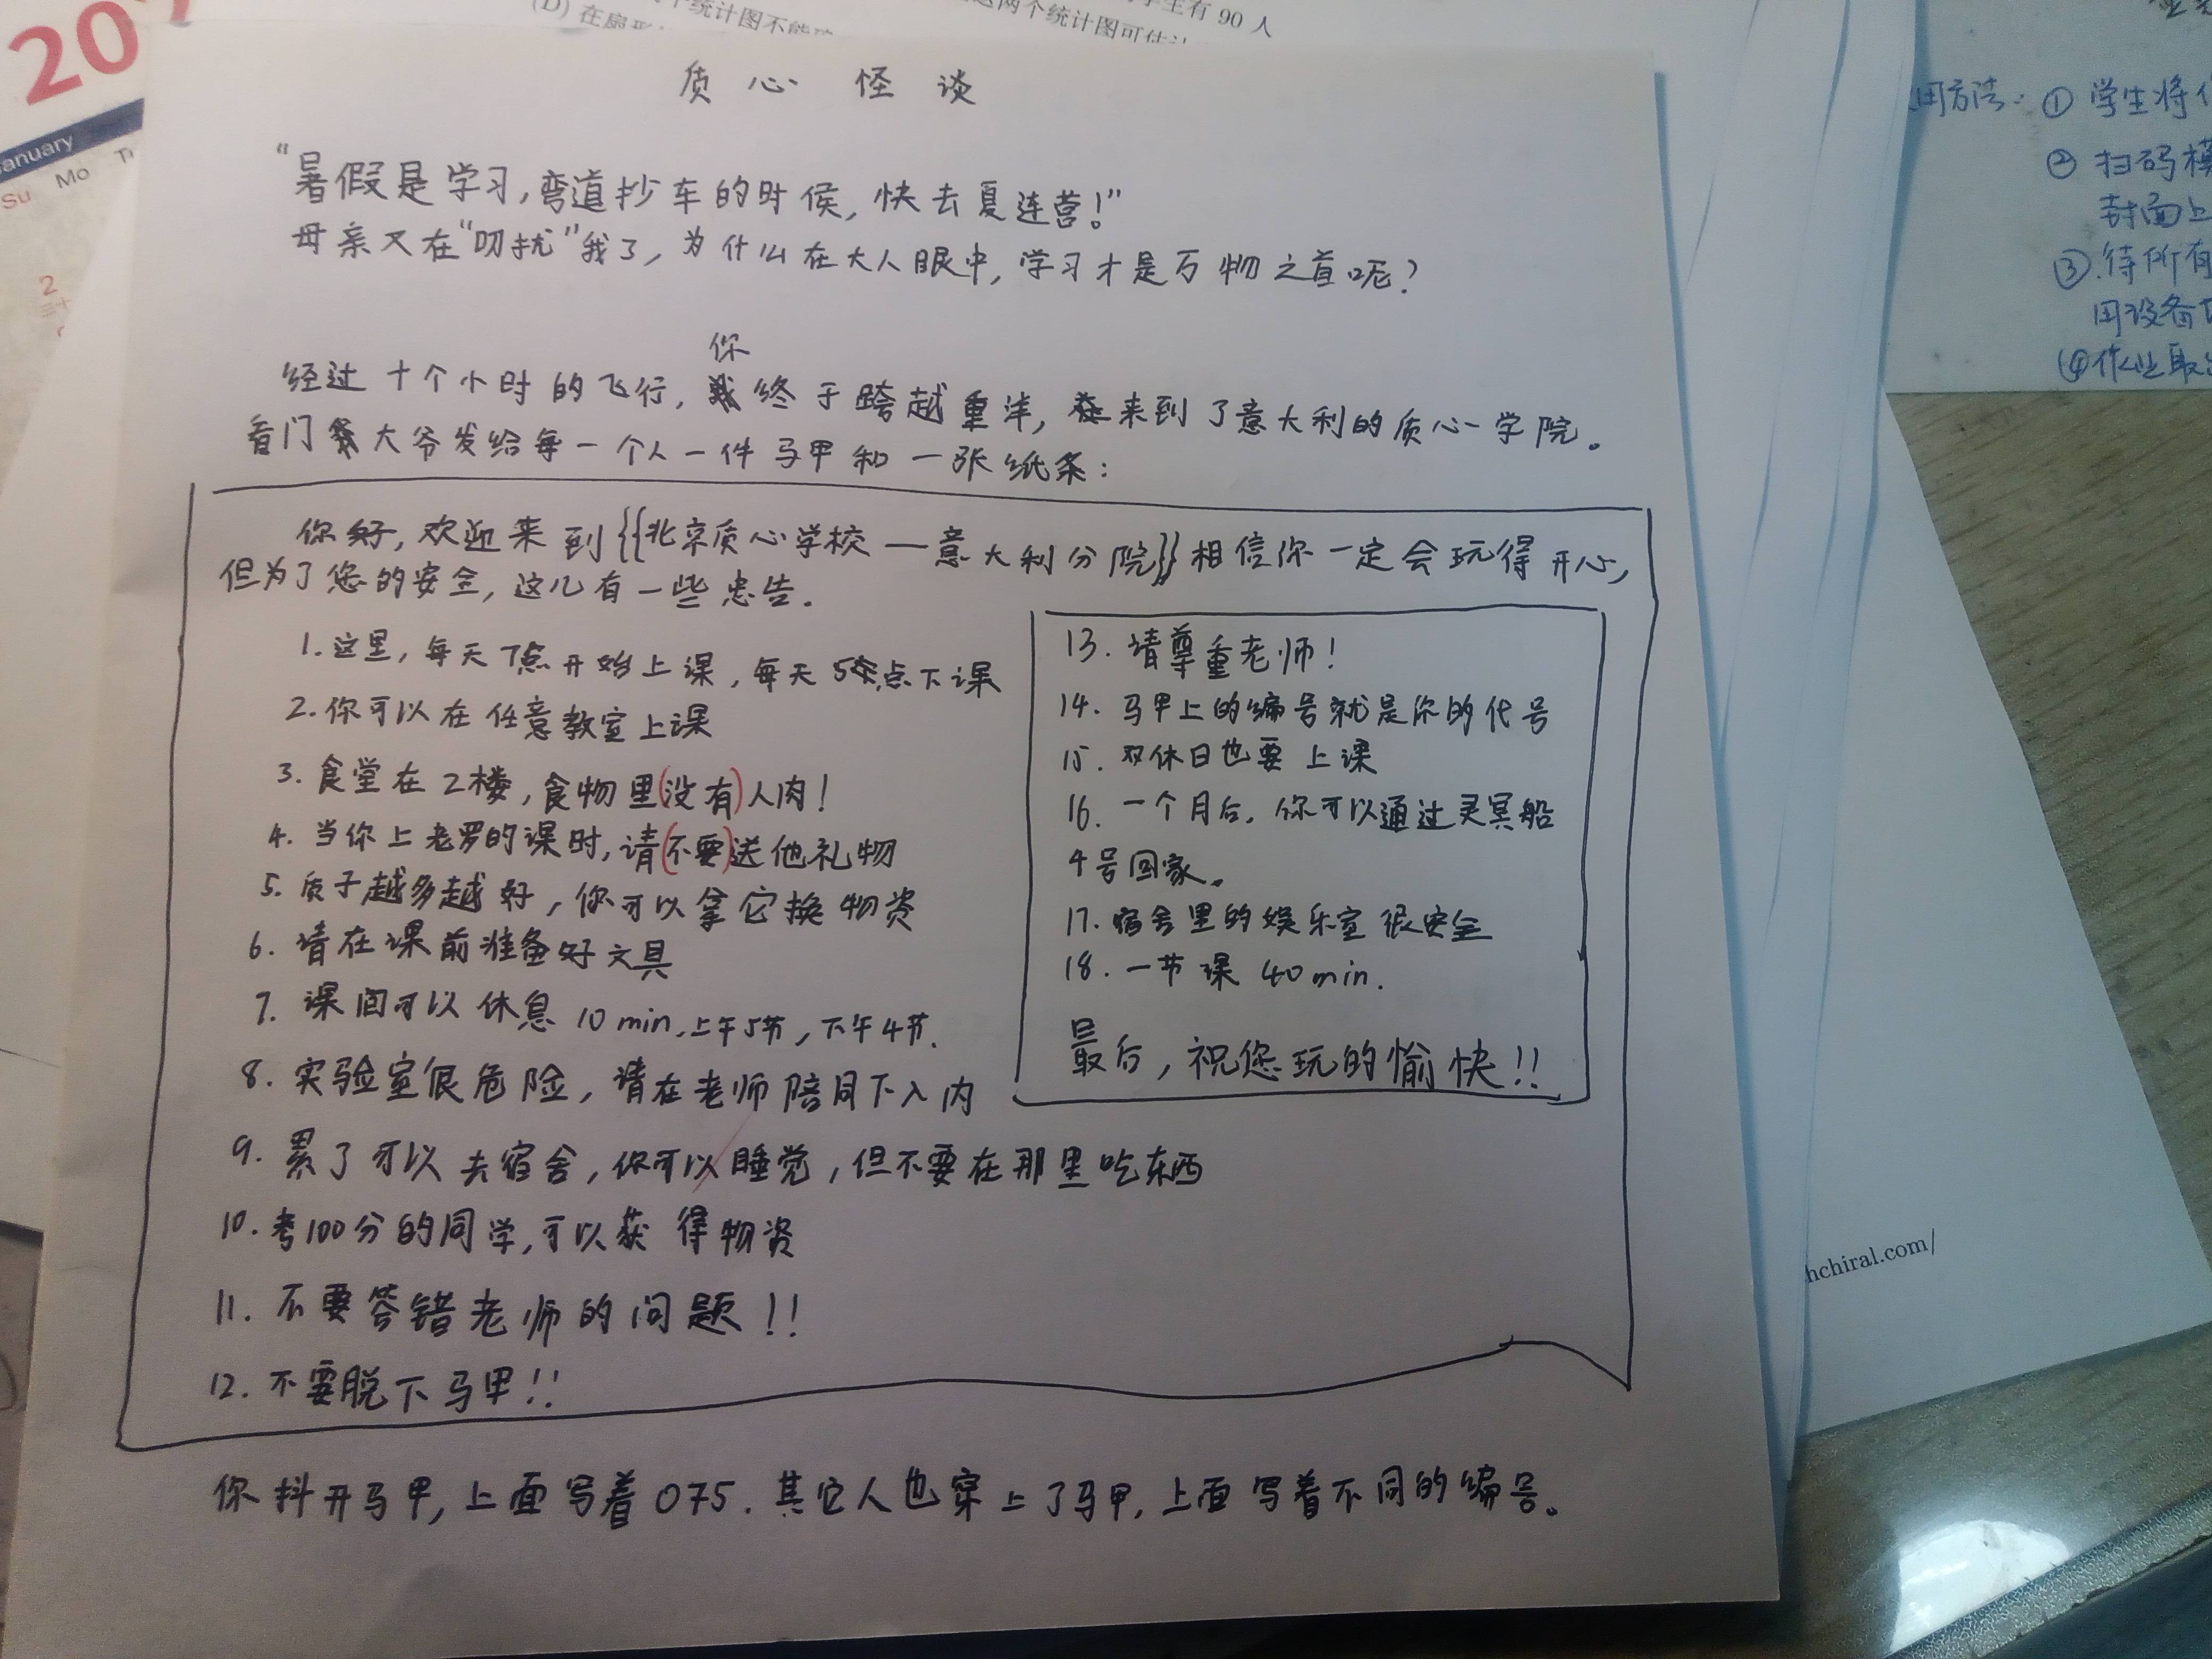 质心怪谈
“暑假是学习,弯道抄车的时候,快去夏连营!”
母亲又在“叨扰”我了,为什么在大人眼中,学习才是万物之首呢?
经过十个小时的飞行,你终于跨越重洋,来到了意大利的质心学院。
看门大爷发给每一个人一件马甲和一张纸条:
你好,欢迎来到{{北京质心学校—意大利分院}}相信你一定会玩得开心,
但为了您的安全,这儿有一些忠告.
1.这里,每天7点开始上课,每天5点下课
2.你可以在任意教室上课
3.食堂在2楼,食物里(没有)人肉!
4.当你上老罗的课时,请(不要)送他礼物
5.质子越多越好,你可以拿它换物资
6.请在课前准备好文具
7.课间可以休息10min,上午5节,下午4节.
8.实验室很危险,请在老师陪同下入内
9.累了可以去宿舍,你可以睡觉,但不要在那里吃东西
10.考100分的同学,可以获得物资
11.不要答错老师的问题!!
12.不要脱下马甲!!
13.请尊重老师!
14.马甲上的编号就是你的代号
15.双休日也要上课
16.一个月后,你可以通过灵冥船
4号回家。
17.宿舍里的娱乐室很安全
18.一节课40min.
最后,祝您玩的愉快!!
你抖开马甲,上面写着075.其它人也穿上了马甲,上面写着不同的编号。
20
January
Su Mo
2
(D)在扇形
个统计图不能
学生有90人
这两个统计图可估计
用方法:①学生将
②扫码
封面上
③.待所有
用设备
④作业取
hchiral.com/